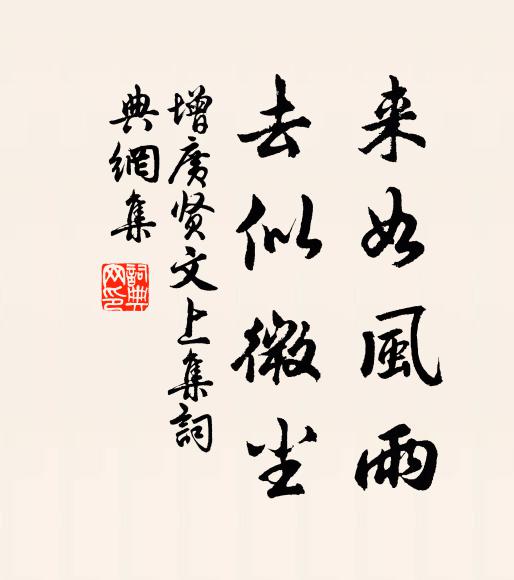 来如風雨
去似微尘
增廣贤文上集詞
典網集
詞典
网印